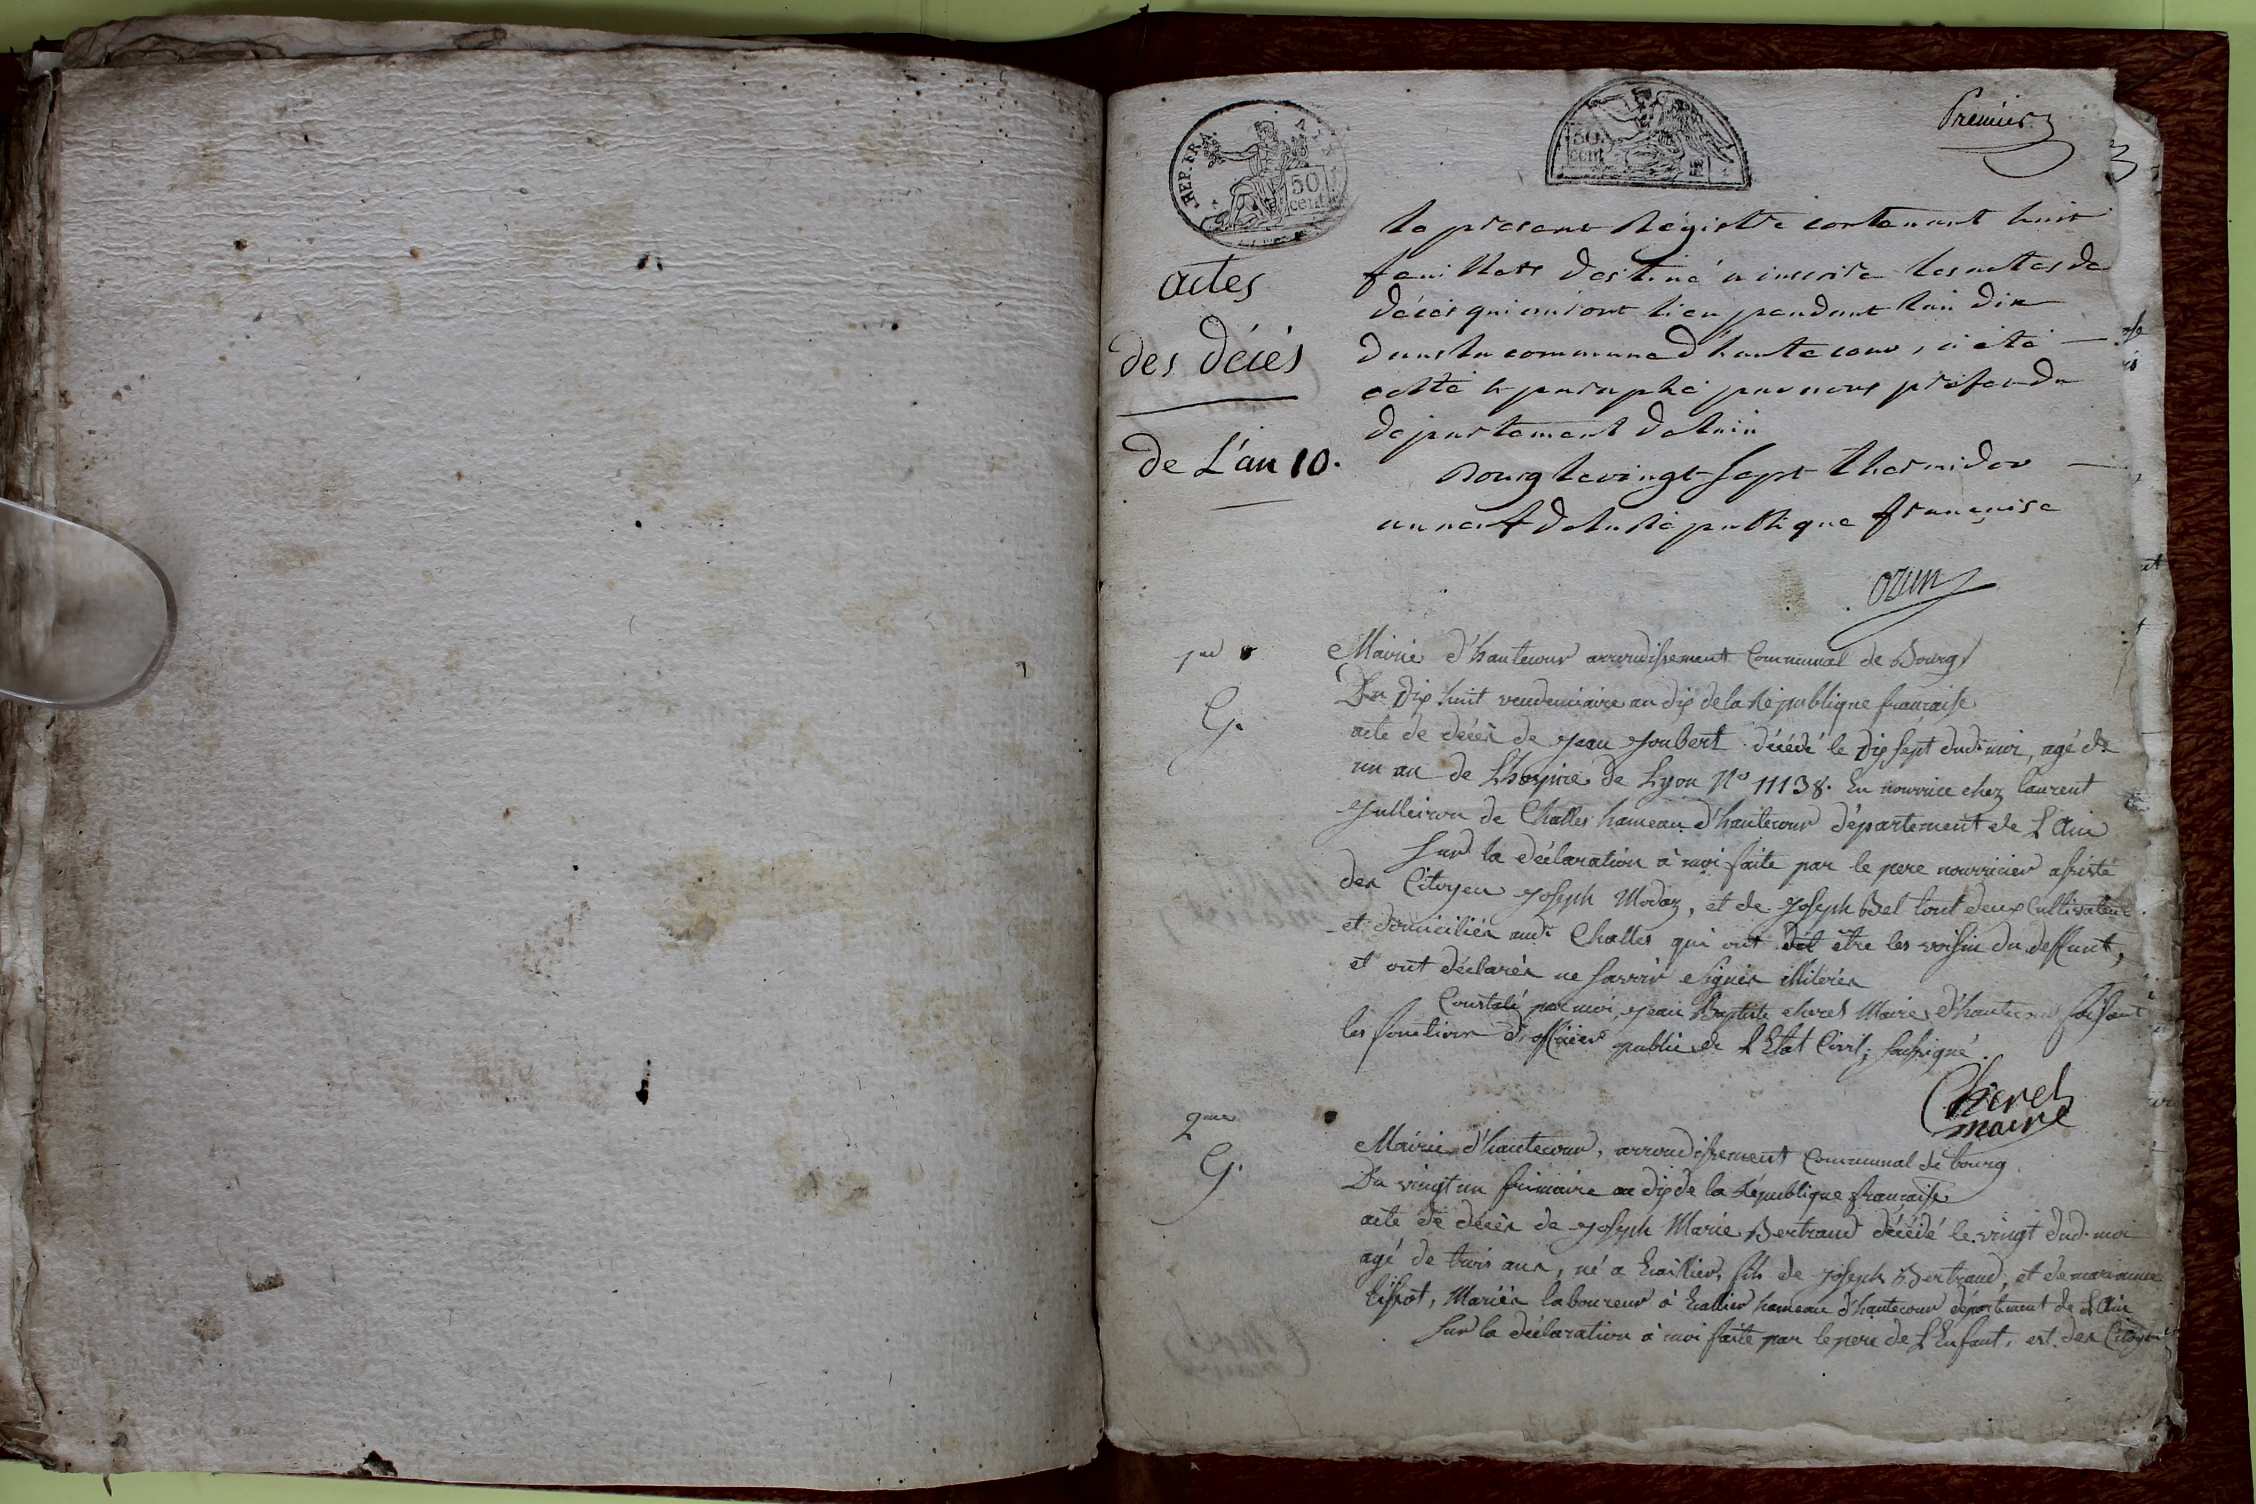 Premier
REP. FRA.
50
cent
50
cent
actes
des décés
de L'an 10.
Le present Régistre contenant huit
feuillets destiné a inscrire les actes de
décès qui auront lieu pendant l'an dix
dans la commune d'hautecour, a été
cotté et paraphé par nous préfet du
département de l'ain
Bourg le vingt sept thermidor
an neuf de la République française
ozun
1er
G.
Mairie d'hautecour arrondissement Communal de Bourg
Du Dix huit vendemiaire an dix de la République francaise
acte de décès de Jean Joubert décédé le dix sept dud. moi, agé de
un an de Lhospice de Lyon No 11138. En nourrice chez laurent
de Challes hameau d'hautecour département de L'Ain
Sur la déclaration à moi faite par le pere nourricier assisté
des Citoyen Joseph Modaz, et de Joseph Bel tout deux Cultivateur
et domiciliés aud. Challes qui ont dit être les voisin du deffunt,
et ont déclarés ne savoir signer illiterés
Constaté par moi, Jean Baptiste cherel Maire d'hautecour faisant
les fonctions d'officier public de L'Etat Civil, soussigné.
Cherel
maire
2me
G.
Mairie d'hautecour, arrondissement Communal de bourg
Du vingt un frimaire an dix de la République francaise
acte de décès de Joseph Marie Bertrand décédé le vingt dud. moi
agé de trois ans, né a fils de Joseph Bertrand, et de marianne
tissot, Mariés laboureur à hameau d'hautecour département de L'Ain
Sur la déclaration à moi faite par le pere de L'Enfant, et des Citoyen